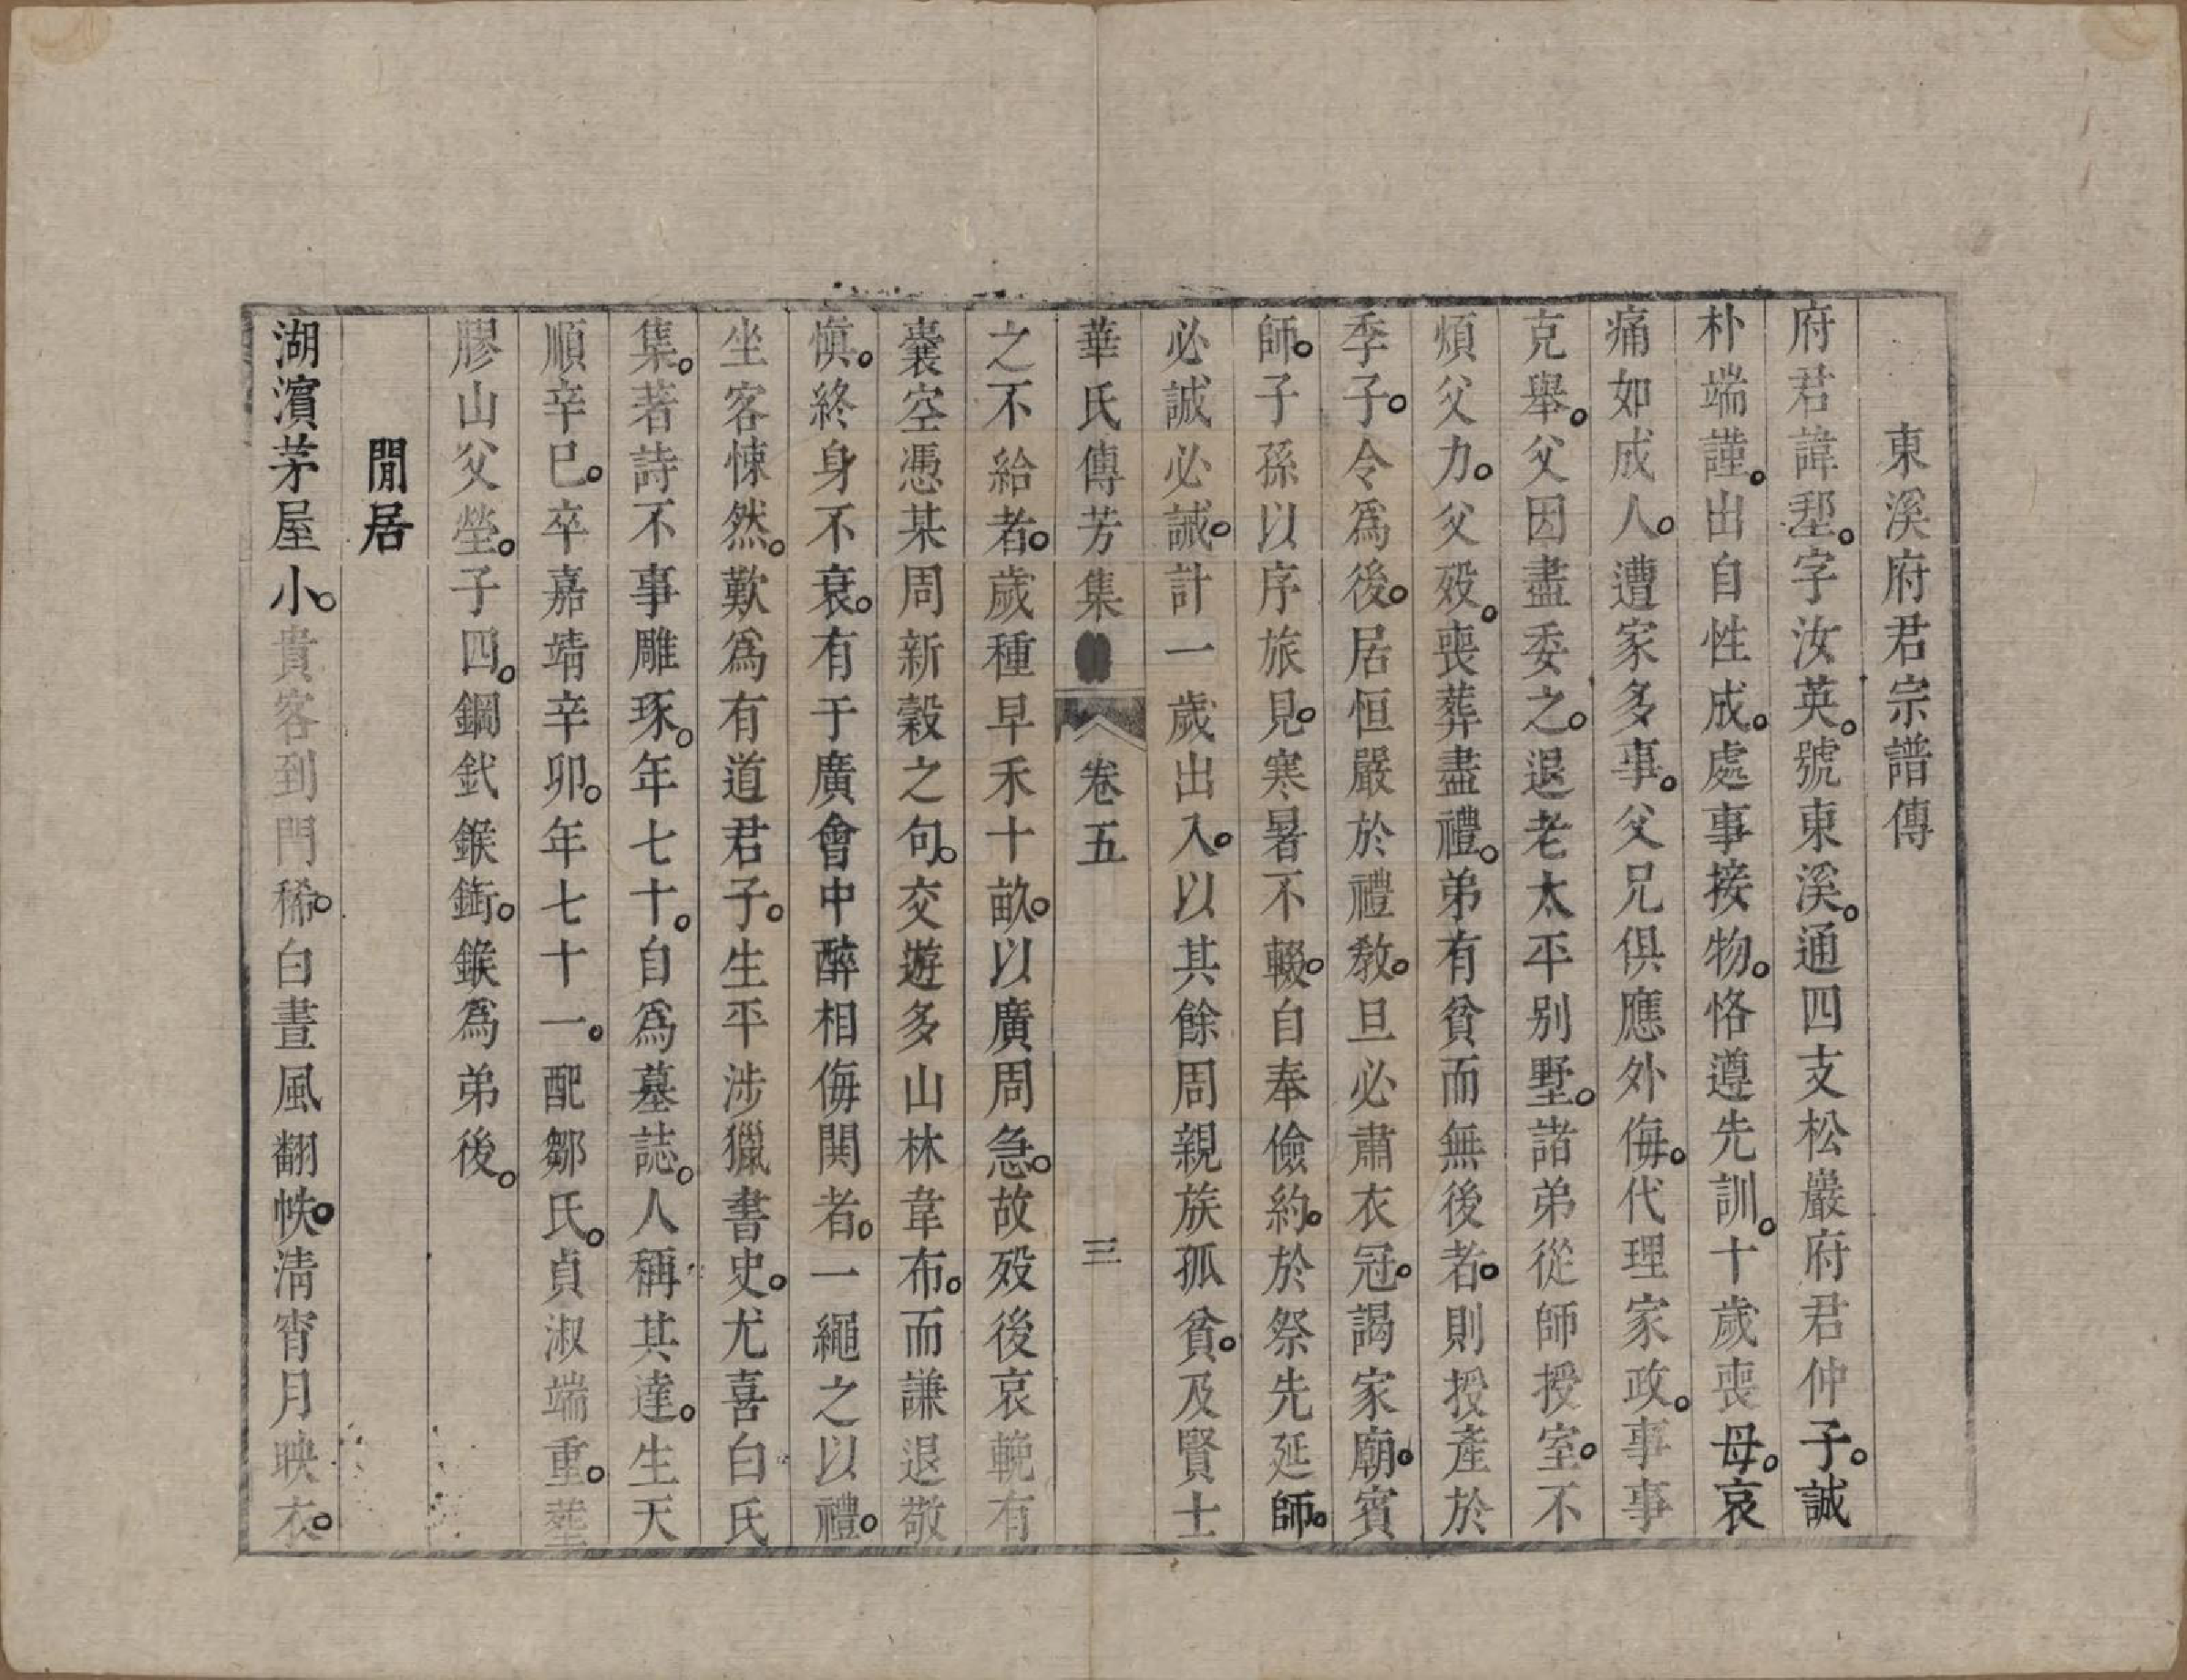 東溪府君宗譜傳
府君諱堊。字汝英。號東溪。通四支松巖府君仲子。誠
朴端謹。出自性成。處事接物。恪遵先訓。十歲喪母。哀
痛如成人。遭家多事。父兄俱應外侮。代理家政。事事
克舉。父因盡委之。退老太平别墅。諸弟從師授室。不
煩父力。父歿。喪葬盡禮。弟有貧而無後者。則授產於
季子。令爲後。居恒嚴於禮教。旦必肅衣冠。謁家廟。賓
師。子孫以序旅見。寒暑不輟。自奉儉約。於祭先延師。
必誠必誡。計一歲出入。以其餘周親族孤貧。及賢士
華氏傳芳集 卷五 三
之不給者。歲種早禾十畝。以廣周急。故歿後哀輓有
囊空憑某周新穀之句。交遊多山林韋布。而謙退敬
愼。終身不衰。有于廣會中醉相侮鬨者。一繩之以禮。
坐客悚然。歎爲有道君子。生平涉獵書史。尤喜白氏
集。著詩不事雕琢。年七十。自爲墓誌。人稱其達。生天
順辛巳。卒嘉靖辛卯。年七十一。配鄒氏。貞淑端重。塟
膠山父塋。子四。鋼釴鍭銜。鍭爲弟後。
閒居
湖濵茅屋小。貴客到門稀。白晝風翻帙。淸宵月映衣。